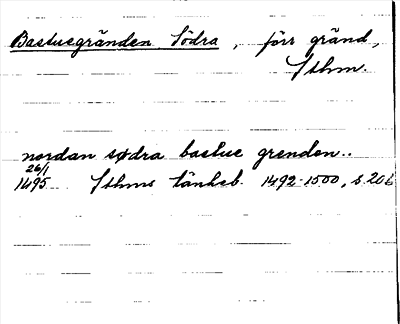 Bastuegränden Södra, förr gränd,
Sthm.
nordan södra bastue grenden..
26/1
1495 Sthms tänkeb. 1492-1500, s 206